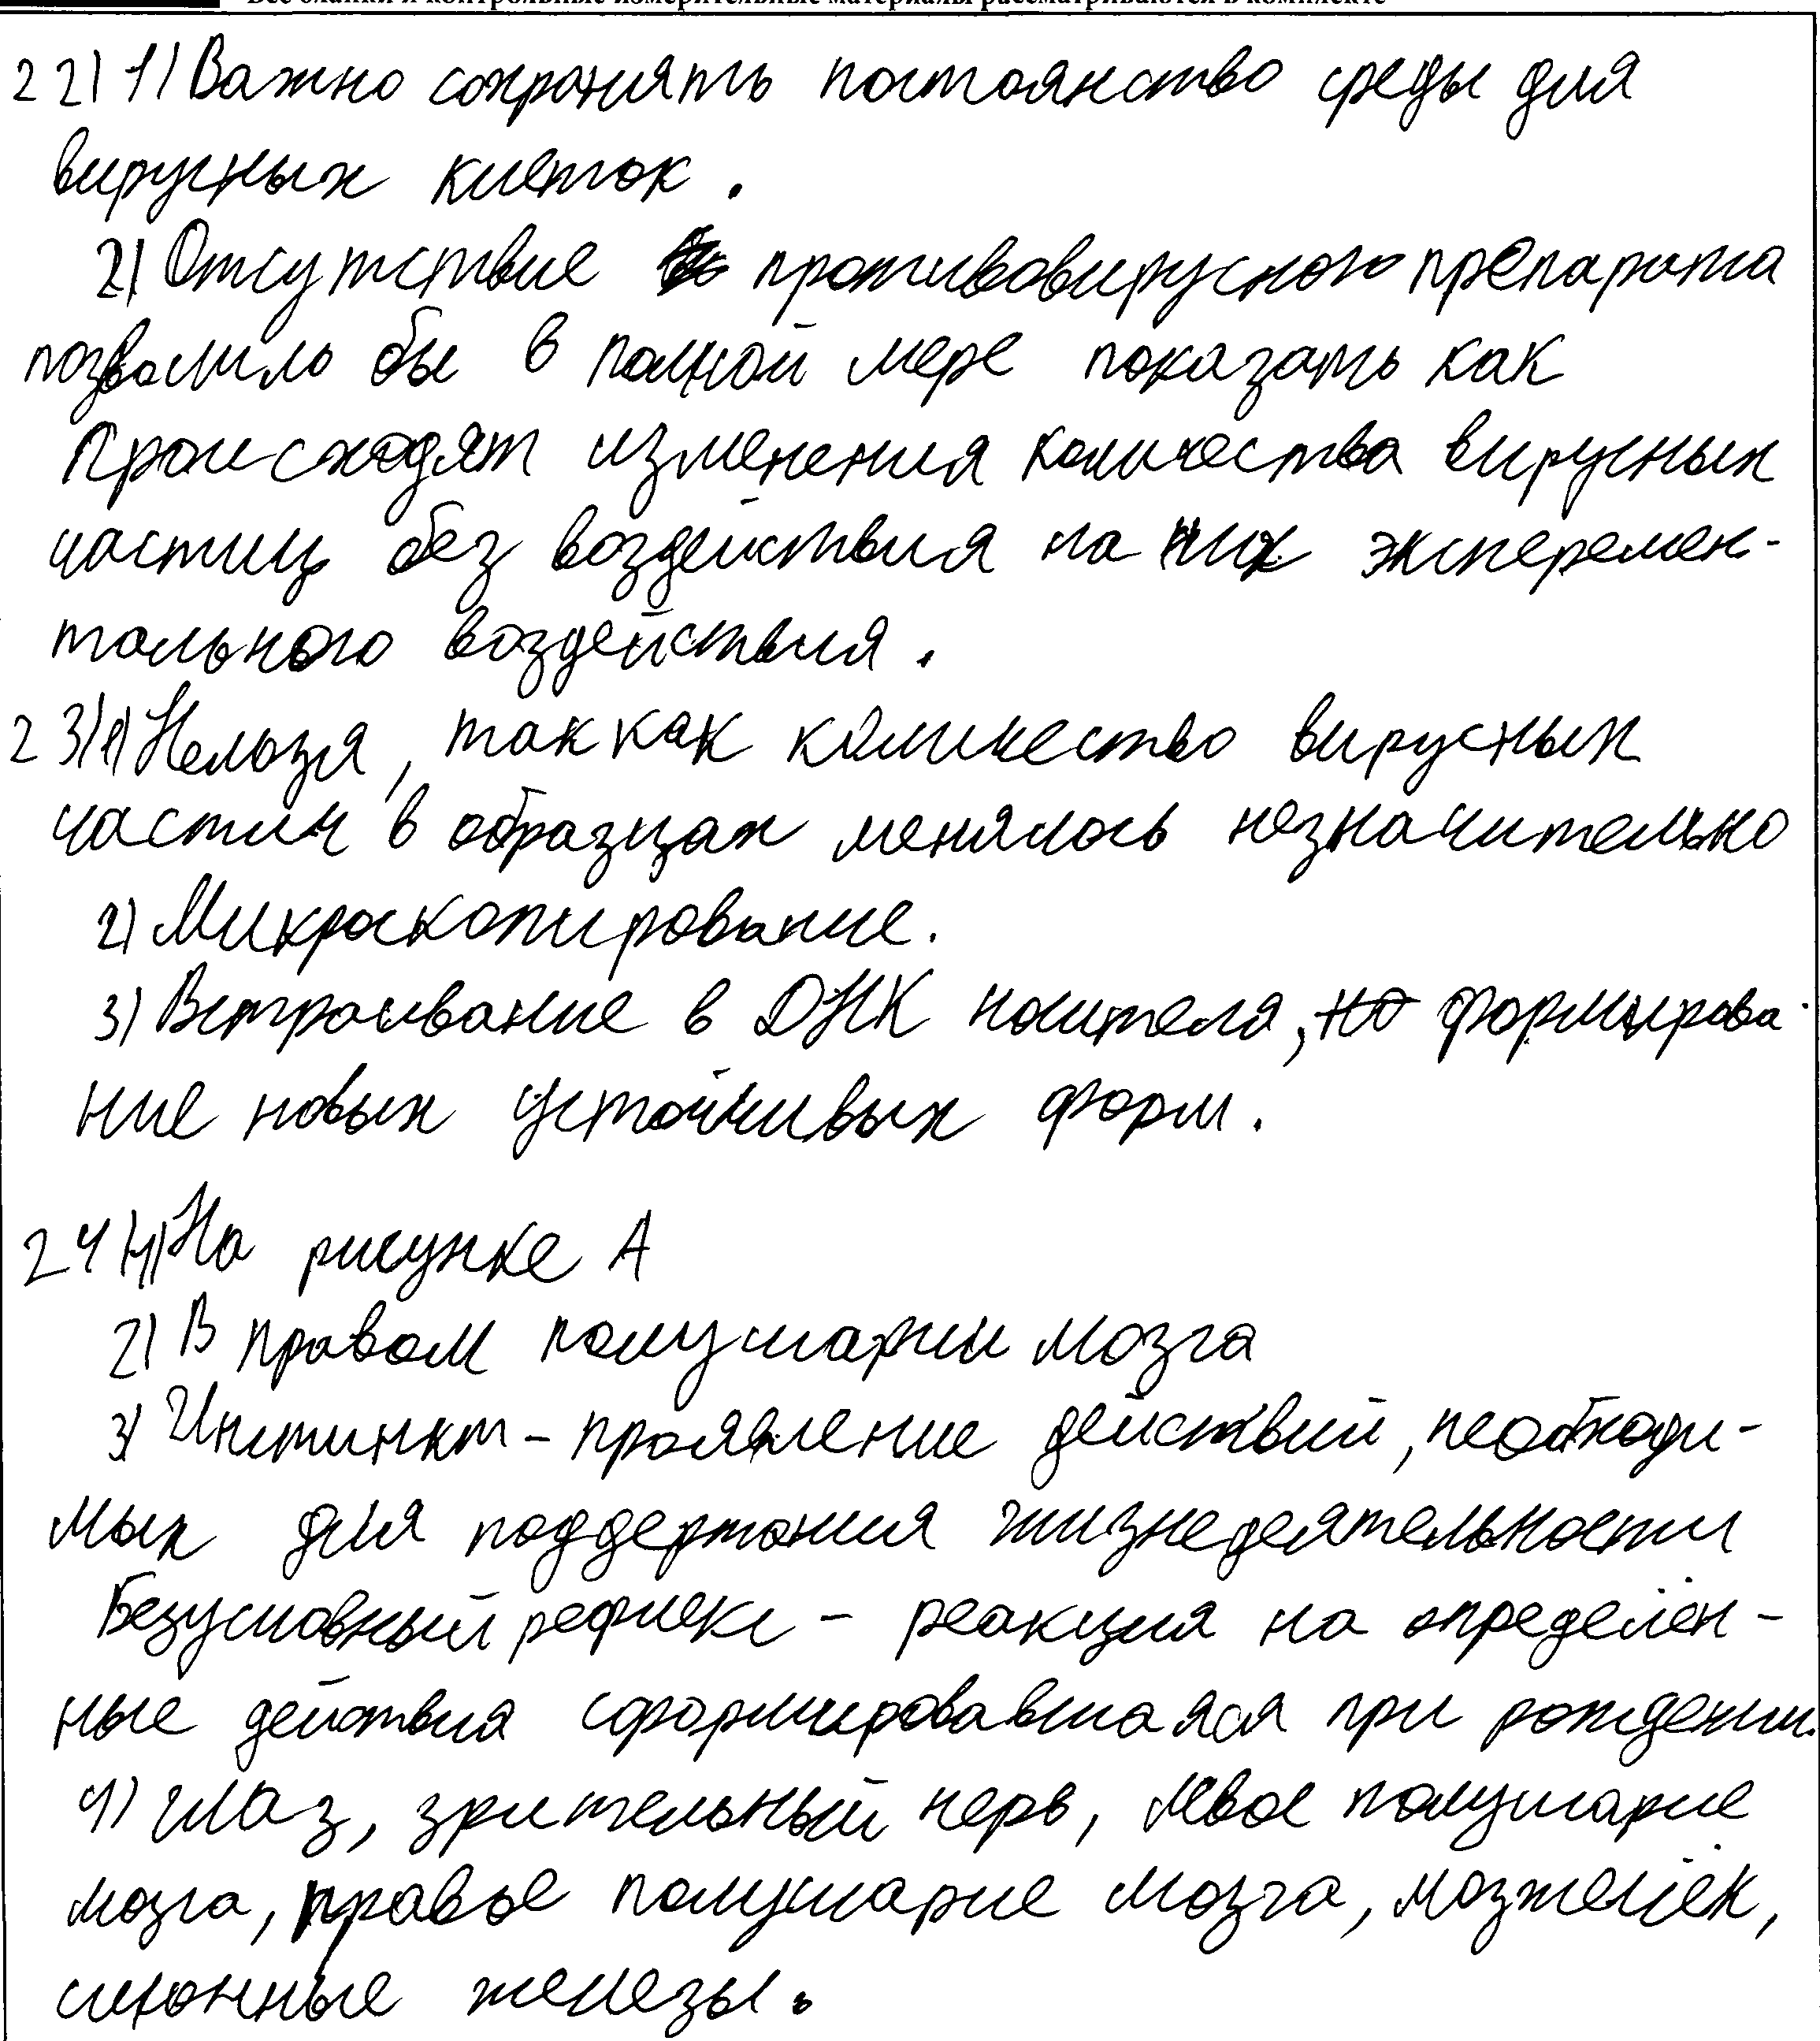 Все бланки и контрольные измерительные материалы рассматриваются в комплекте
22) 1) Важно сохранять постоянство среды для
вирусных клеток.
2) Отсутствие противовирусного препарата
позволило бы в полной мере показать как
происходят изменения количества вирусных
частиц без воздействия на них эксперемен-
тального воздействия.
23) 1) Нельзя, так как количество вирусных
частич в образцах менялось незначительно
2) Микроскопирование.
3) Встраивание в ДНК носителя, но формирова-
ние новых устойчивых форм.
24) 1) На рисунке А
2) В правом полушарии мозга
3) Инстинкт – проявление действий, необходи-
мых для поддержания жизнедеятельности
Безусловный рефлекс – реакция на определён-
ные действия сформировавшаяся при рождении.
4) Глаз, зрительный нерв, левое полушарие
мозга, правое полушарие мозга, мозжечёк,
слюнные железы.